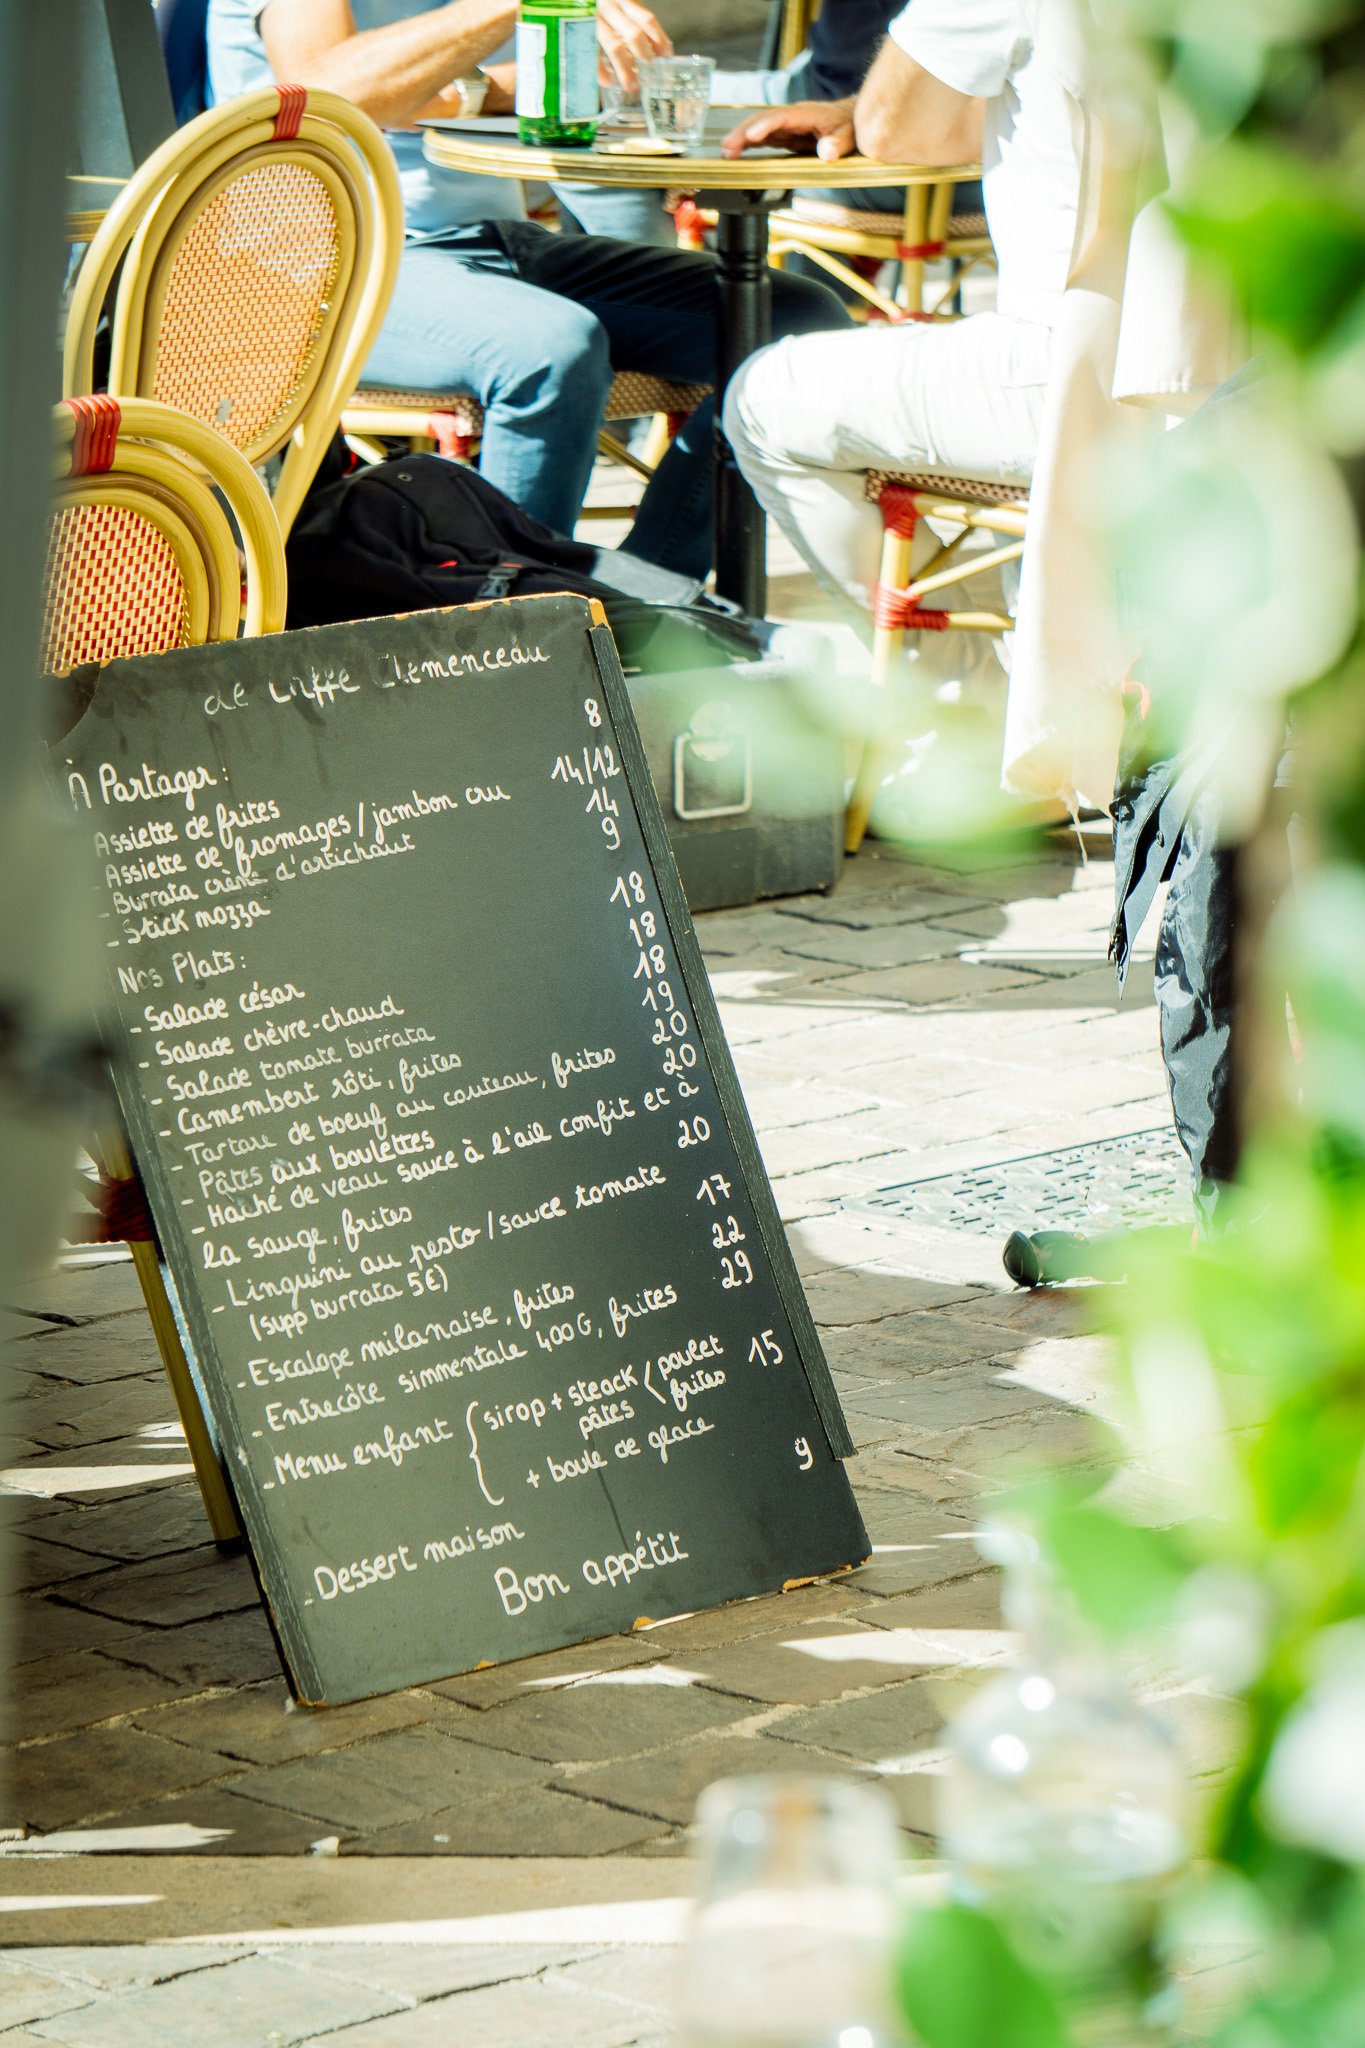 Le Caffe Clemenceau
À Partager:
- Assiette de frites 8
- Assiette de fromages/jambon cru 14/12
- Burrata crème d'artichaut 14
- Stick mozza 9
Nos Plats:
- Salade césar 18
- Salade chèvre-chaud 18
- Salade tomate burrata 18
- Camembert rôti, frites 19
- Tartare de boeuf au couteau, frites 20
- Pâtes aux boulettes 20
- Haché de veau sauce à l'ail confit et à
la sauge, frites 20
- Linguini au pesto/sauce tomate 17
(supp burrata 5€)
- Escalope milanaise, frites 22
- Entrecôte simmentale 400G, frites 29
- Menu enfant { sirop + steack/poulet 15
pâtes < frites
+ boule de glace
- Dessert maison 9
Bon appétit